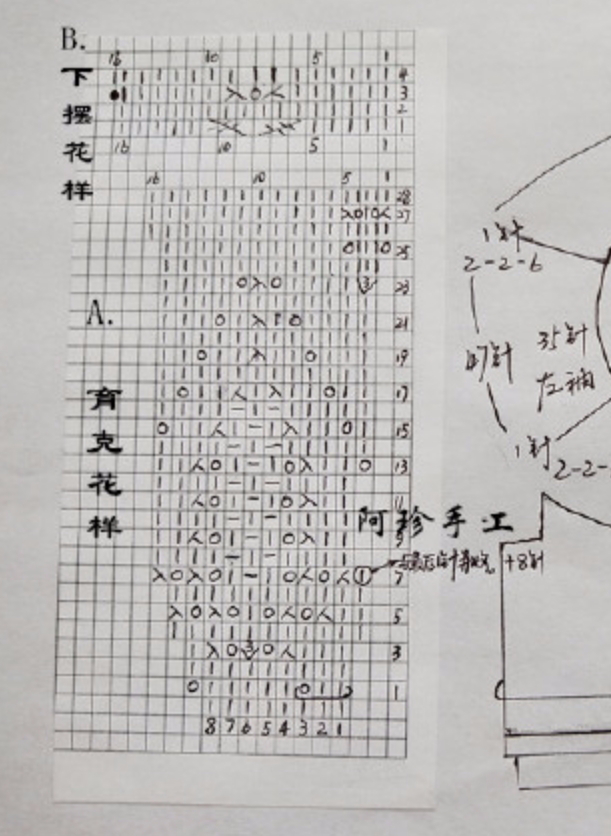 B.
下摆花样
16 10 5 1
4
3
2
1
16 10 5 1
16 10 5 1
28
27
25
23
21
19
17
15
13
11
9
7
5
3
1
8 7 6 5 4 3 2 1
A.
育克花样
阿珍手工
1针
2-2-6
47针
35针
左袖
1针
2-2-
+8针